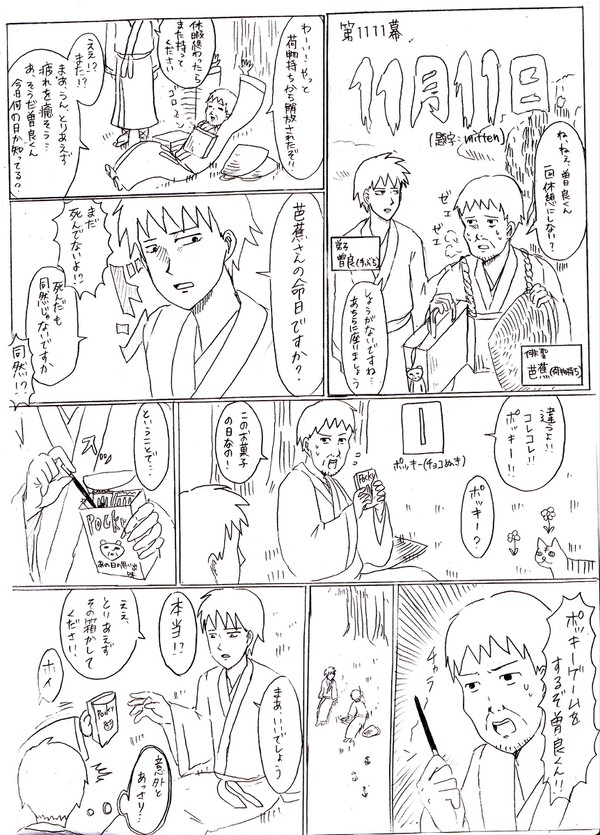 第1111幕
11月11日
(題字:mitten)
ね、ねえ、曽良くん
一回休憩にしない?
ゼエ
ゼエ
弟子
曽良
俳聖
芭蕉(荷物持ち)
しょうがないですね…
あちらに座りましょう
わーい!やっと
荷物持ちから解放されたぞ!!
休暇終わったら
また持って
ください
ゴロン
ええ!?
また!?
まあ、うん、とりあえず
疲れを癒そう…
あ、そうだ曽良くん
今日何の日か知ってる?
芭蕉さんの命日ですか?
まだ
死んでないよ!?
死んだも
同然じゃないですか
同然!?
違うよ!!
コレコレ!!
ポッキー!!
ポッキー?
ポッキー(チョコぬき)
このお菓子
の日なの!
Pocky
ということで…
スッ
Pocky
あの日の思い出
味
ポッキーゲームを
するぞ曽良くん!!
チャラ
まあ、いいでしょう
本当!?
ええ、
とりあえず
その箱かして
ください
ホイ
Pocky
意外と
あっさり…